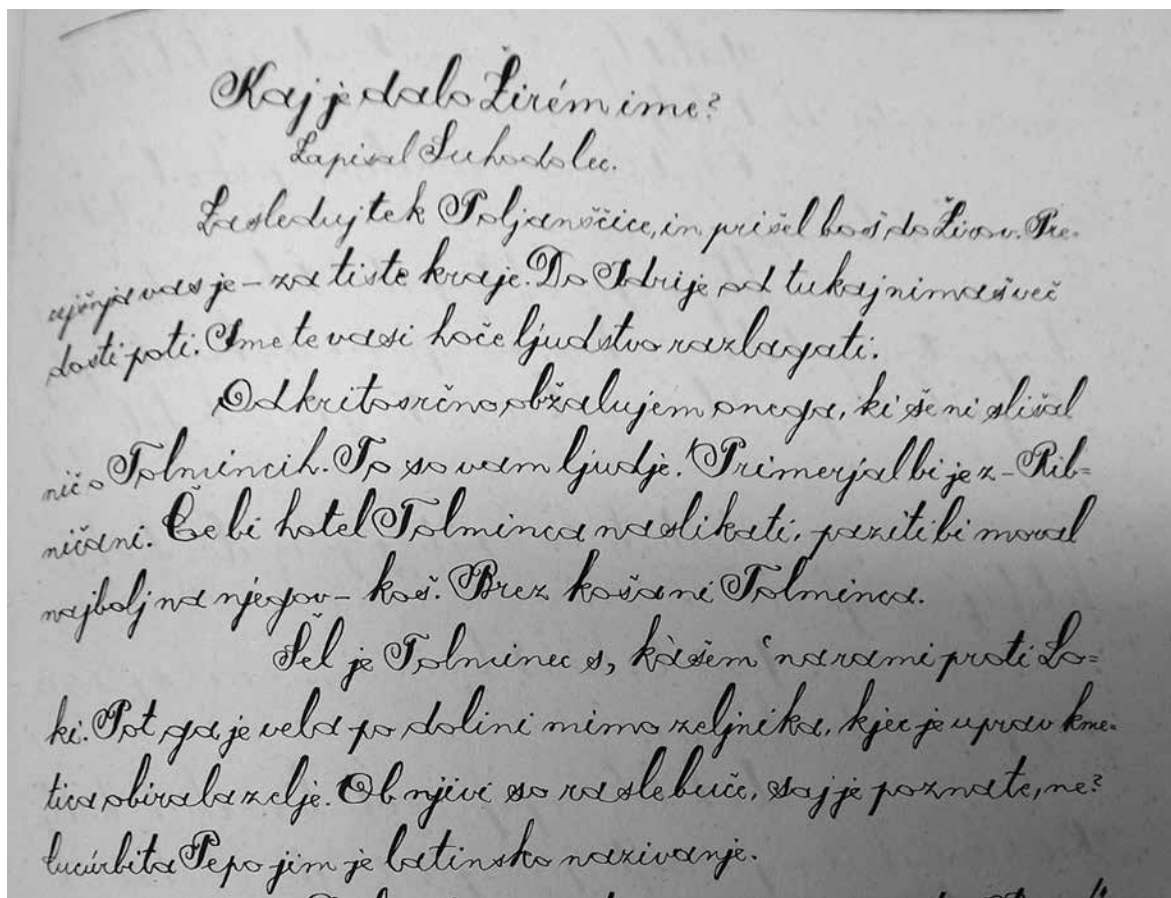 Kaj je dalo Žirém ime?
Zapisal Suhodolec.
Zasleduj tek Poljanščice, in prišel boš do Žirov. Pre-
cejšnja vas je – za tiste kraje. Do Idrije od tukaj nimaš več
dosti poti. Ime te vasi hoče ljudstvo razlagati.
Odkritosrčno obžalujem onega, ki še ni slišal
nič o Tolmincih. To so vam ljudje! Primerjal bi je z – Rib-
ničani. Če bi hotel Tolminca naslikati, paziti bi moral
najbolj na njegov – koš. Brez koša ni Tolminca.
Šel je Tolminec s "kàšem" na rami proti Lo-
ki. Pot ga je vela po dolini mimo zeljnika, kjer je uprav kme-
tica obirala zelje. Ob njivi so rasle buče, saj je poznate, ne?
Cucúrbita Pepo jim je latinsko nazivanje.